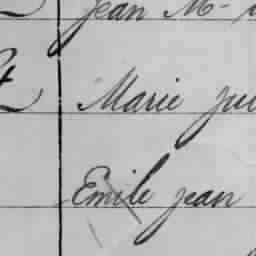 Jean M-
Marie
Emile jean